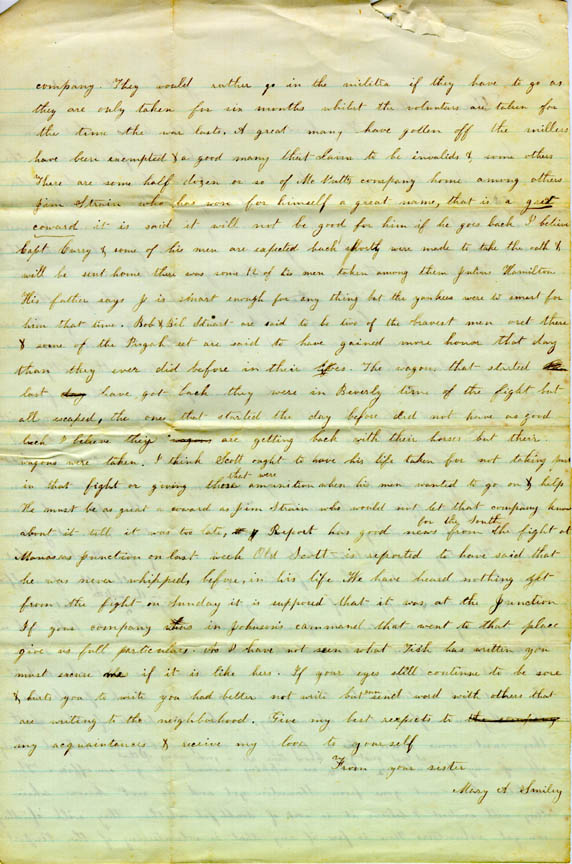 company. They would rather go in the militia if they have to go as
they are only taken for six months whilst the volunters are taken for
the time the war lasts. A great many have gotten off the millers
have been exempted & a good many that claim to be invalids & some others
There are some half dozen or so of Mc Nutts company home among others
Jim Strain who has won for himself a great name, that is a great
coward it is said it will not be good for him if he goes back I believe
Capt Curry & some of his men are expected back shortly were made to take the oath &
will be sent home there was some 12 of his men taken among them Julius Hamilton
His father says J is smart enough for any thing but the yankees were to smart for
him that time. Bob & Bil Stuart are said to be two of the bravest men out there
& some of the Pisgah set are said to have gained more honor that day
than they ever did before in their lives. The wagons that started
last day have got back they were in Beverly time of the fight but
all escaped, the ones that started the day before did not have as good
luck I believe they wagons are getting back with their horses but their
wagons were taken. I think Scott ought to have his life taken for not taking part
in that fight or giving those that were amunition when his men wanted to go on & help
He must be as great a coward as Jim Strain who would not let that company know
about it till it was too late, Report has good news for the South from the fight at
Manasas junction on last week Old Scott is reported to have said that
he was never whipped, before, in his life We have heard nothing yet
from the fight on Sunday it is supposed that it was, at the Junction
If your company was in Johnson's command that went to that place
give us full particulars. I have not seen what Tish has written you
must excuse me if it is like hers. If your eyes still continue to be sore
& hurts you to write you had better not write but send word with others that
are writing to the neighborhood. Give my best respects to the company
my acquaintances & recieve my love to yourself
From your sister
Mary A. Smiley